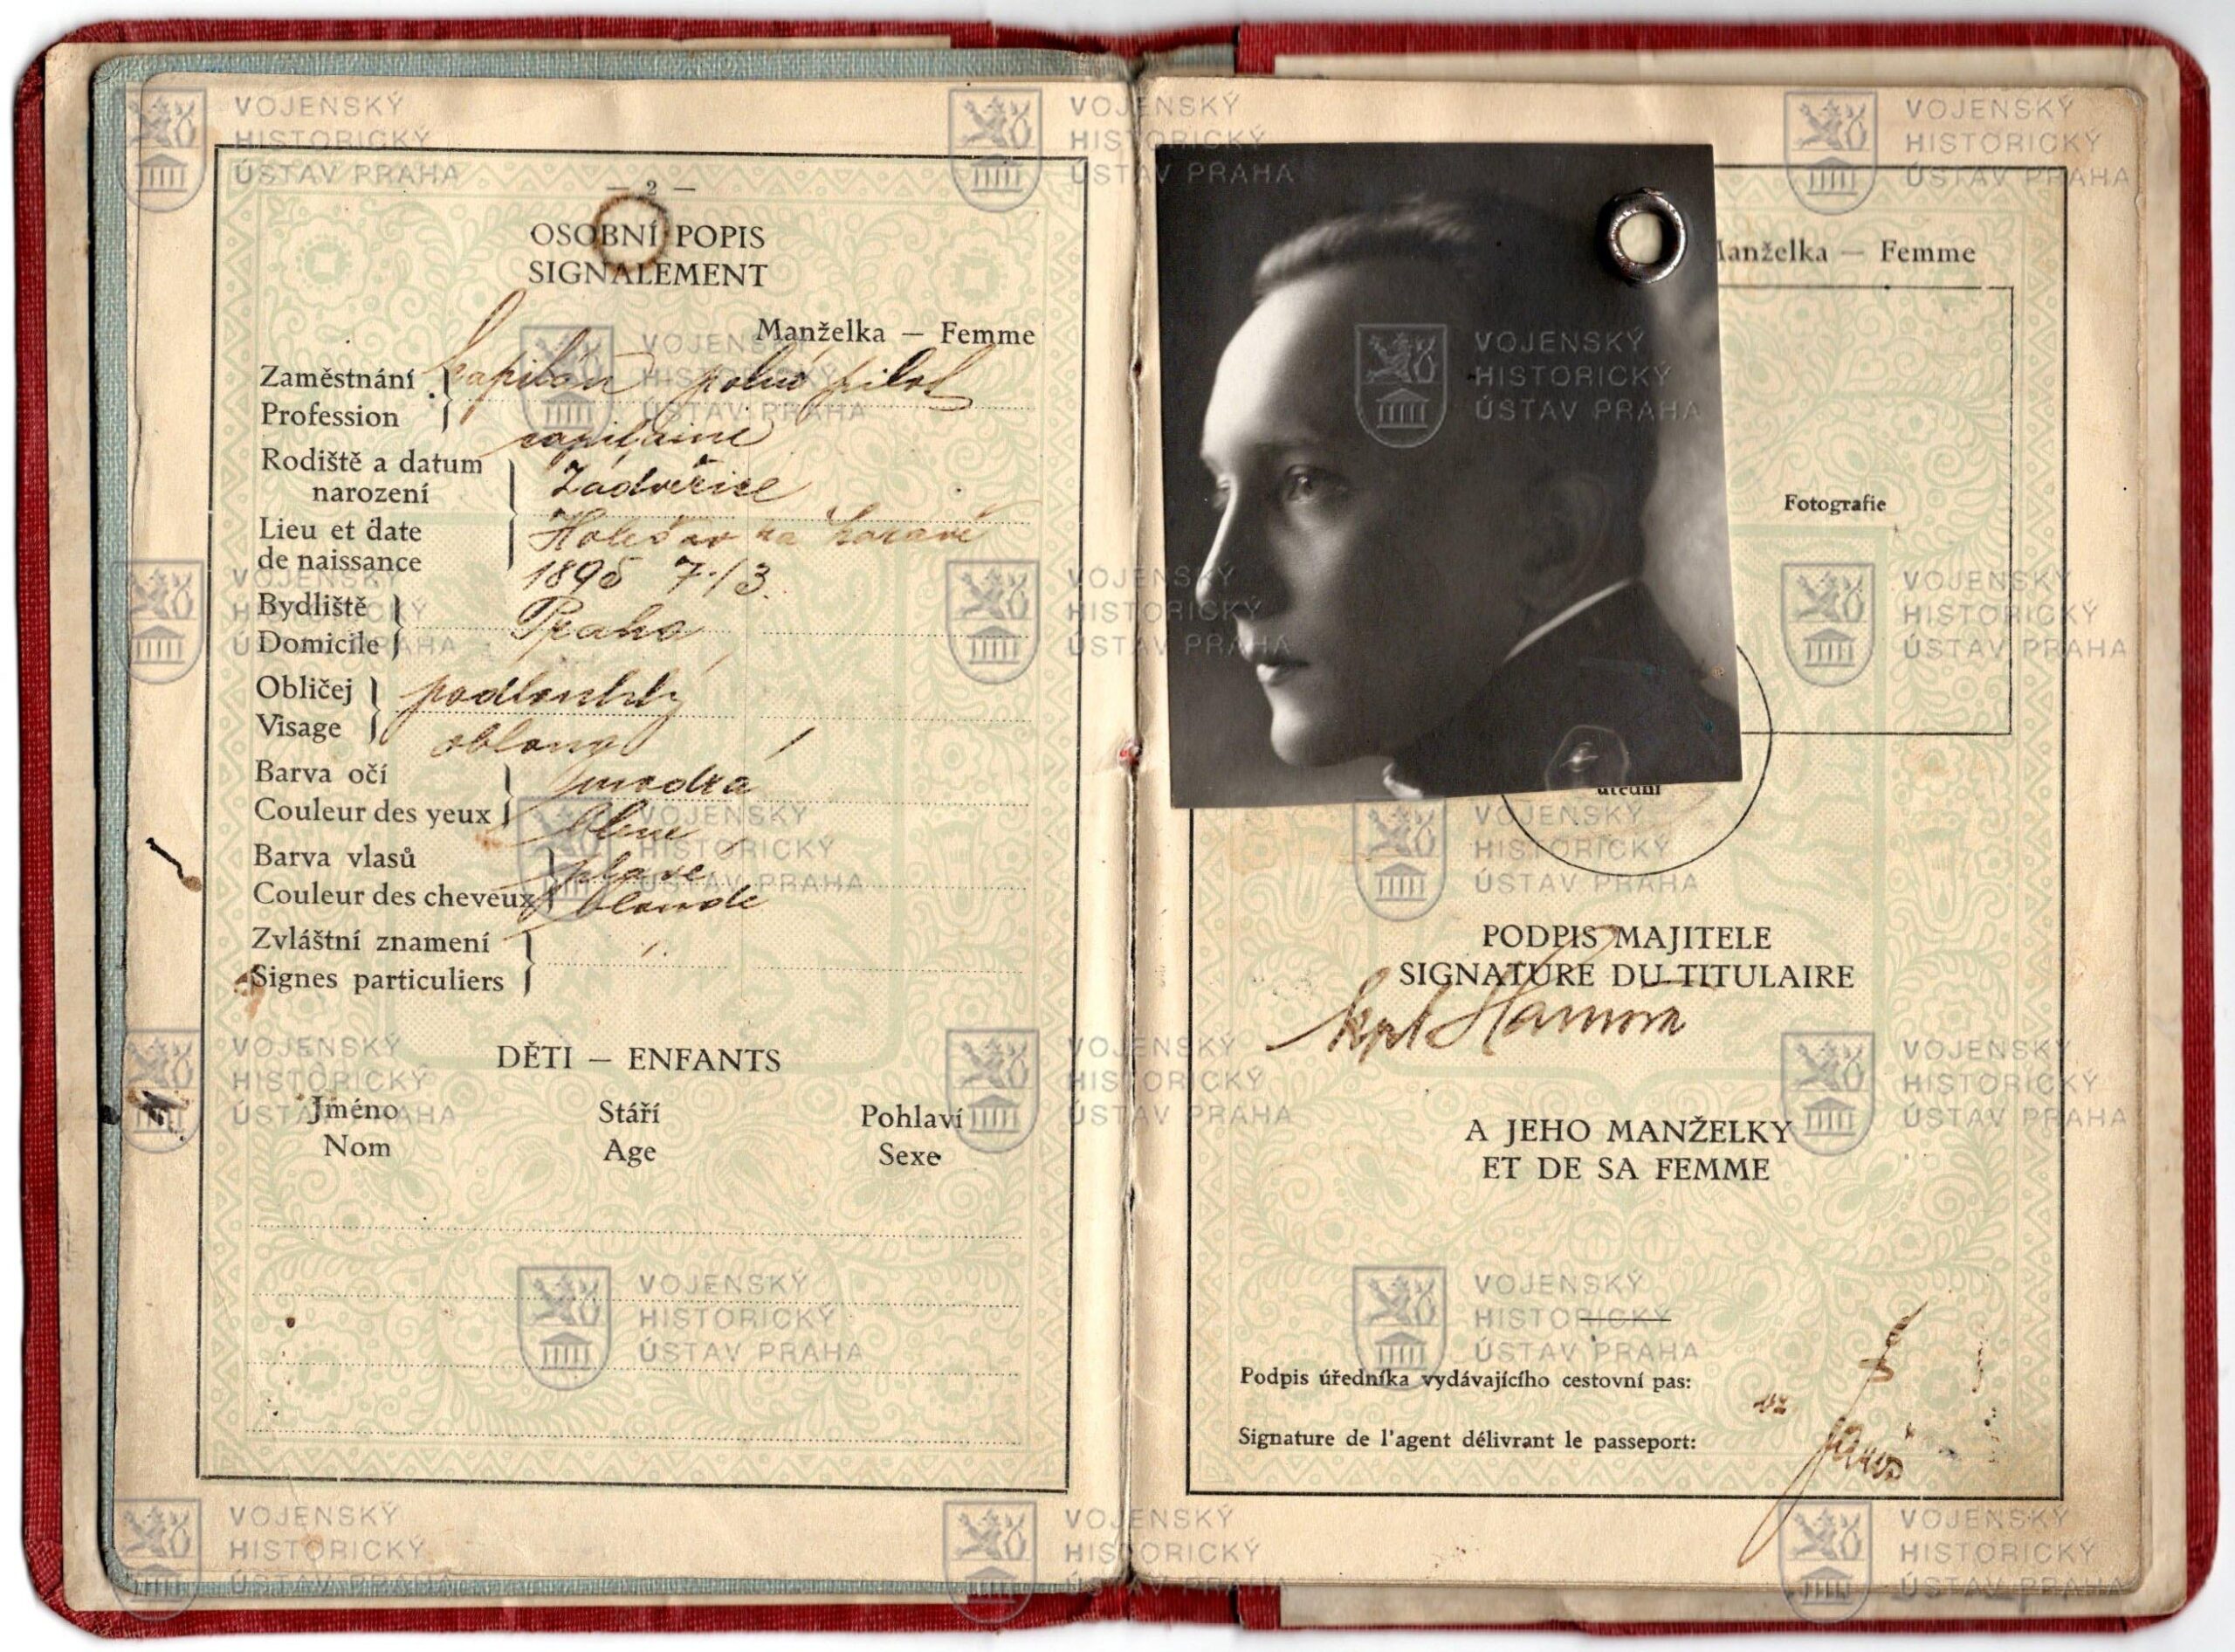 — 2 —
OSOBNÍ POPIS
SIGNALEMENT
Manželka — Femme
Zaměstnání
Profession
kapitán polní pilot
capitaine
Rodiště a datum
narození
Lieu et date
de naissance
Zádveřice
Holešov na Moravě
1895 7./3.
Bydliště
Domicile
Praha
Obličej
Visage
podlouhlý
oblong
Barva očí
Couleur des yeux
modrá
bleue
Barva vlasů
Couleur des cheveux
plavé
blonde
Zvláštní znamení
Signes particuliers
DĚTI — ENFANTS
Jméno Stáří Pohlaví
Nom Age Sexe
Manželka — Femme
Fotografie
úřední
PODPIS MAJITELE
SIGNATURE DU TITULAIRE
kpt Hamšík
A JEHO MANŽELKY
ET DE SA FEMME
Podpis úředníka vydávajícího cestovní pas:
Signature de l'agent délivrant le passeport:
VOJENSKÝ
HISTORICKÝ
ÚSTAV PRAHA